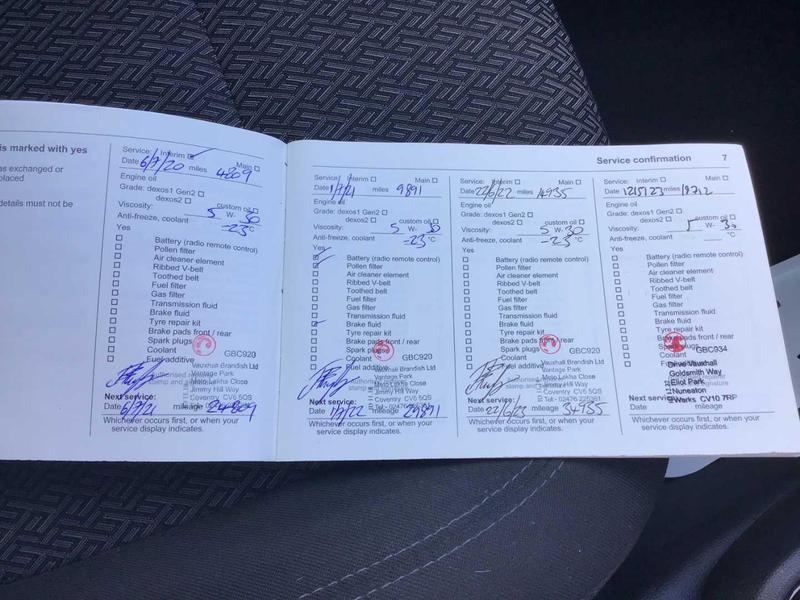 is marked with yes
as exchanged or
placed
details must not be
Service: Interim Main
Date 6/7/20 miles 4809
Engine oil
Grade: dexos1 Gen2
dexos2 custom oil
Viscosity: 5 W- 30
Anti-freeze, coolant -23°C
Yes
Battery (radio remote control)
Pollen filter
Air cleaner element
Ribbed V-belt
Toothed belt
Fuel filter
Gas filter
Transmission fluid
Brake fluid
Tyre repair kit
Brake pads front / rear
Spark plugs
Coolant GBC920
Fuel additive
Vauxhall Brandish Ltd
Vantage Park
Close
Jimmy Hill Way
Coventry CV6 5QS
Next service:
Date 6/7/21 mileage
Whichever occurs first, or when your
service display indicates.
Service confirmation 7
Service: Interim Main
Date 1/7/21 miles 9891
Engine oil
Grade: dexos1 Gen2
dexos2 custom oil
Viscosity: 5 W- 30
Anti-freeze, coolant -23°C
Yes
Battery (radio remote control)
Pollen filter
Air cleaner element
Ribbed V-belt
Toothed belt
Fuel filter
Gas filter
Transmission fluid
Brake fluid
Tyre repair kit
Brake pads front / rear
Spark plugs
Coolant GBC920
Fuel additive
Vauxhall Brandish Ltd
Vantage Park
Close
Jimmy Hill Way
Coventry CV6 5QS
Next service:
Date 1/7/22 mileage 29891
Whichever occurs first, or when your
service display indicates.
Service: Interim Main
Date 22/6/22 miles 14935
Engine oil
Grade: dexos1 Gen2
dexos2 custom oil
Viscosity: 5 W- 30
Anti-freeze, coolant -23°C
Yes
Battery (radio remote control)
Pollen filter
Air cleaner element
Ribbed V-belt
Toothed belt
Fuel filter
Gas filter
Transmission fluid
Brake fluid
Tyre repair kit
Brake pads front / rear
Spark plugs
Coolant GBC920
Fuel additive
Vauxhall Brandish Ltd
Vantage Park
Close
Jimmy Hill Way
Coventry CV6 5QS
Next service:
Date 22/6/23 mileage
Whichever occurs first, or when your
service display indicates.
Service: Interim Main
Date 12/5/23 miles 18712
Engine oil
Grade: dexos1 Gen2
dexos2 custom oil
Viscosity: 5 W- 30
Anti-freeze, coolant °C
Yes
Battery (radio remote control)
Pollen filter
Air cleaner element
Ribbed V-belt
Toothed belt
Fuel filter
Gas filter
Transmission fluid
Brake fluid
Tyre repair kit
Brake pads front / rear
Spark plugs
Coolant GBC934
Fuel additive
Drive Vauxhall
Goldsmith Way
Eliot Park
Nuneaton
Warks CV10 7RP
Next service:
Date mileage
Whichever occurs first, or when your
service display indicates.